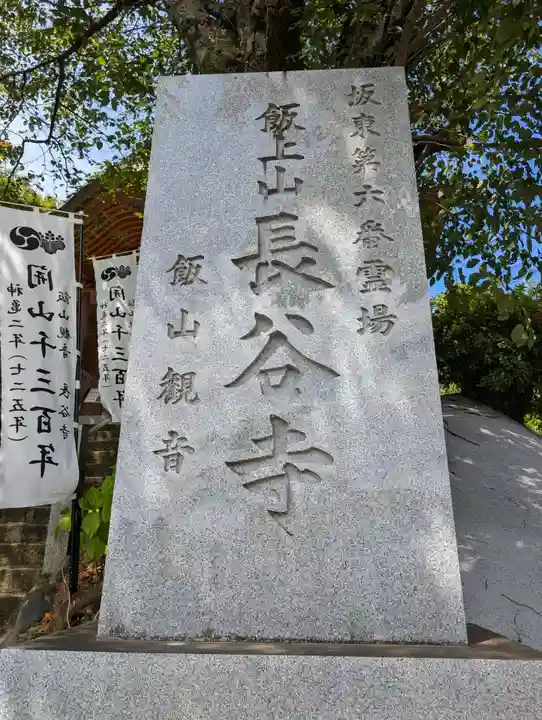 坂東第六番霊場
飯上山
長谷寺
飯山観音
開山千三百年
飯山観音 長谷寺
神亀二年(七二五年)
開山千三百年